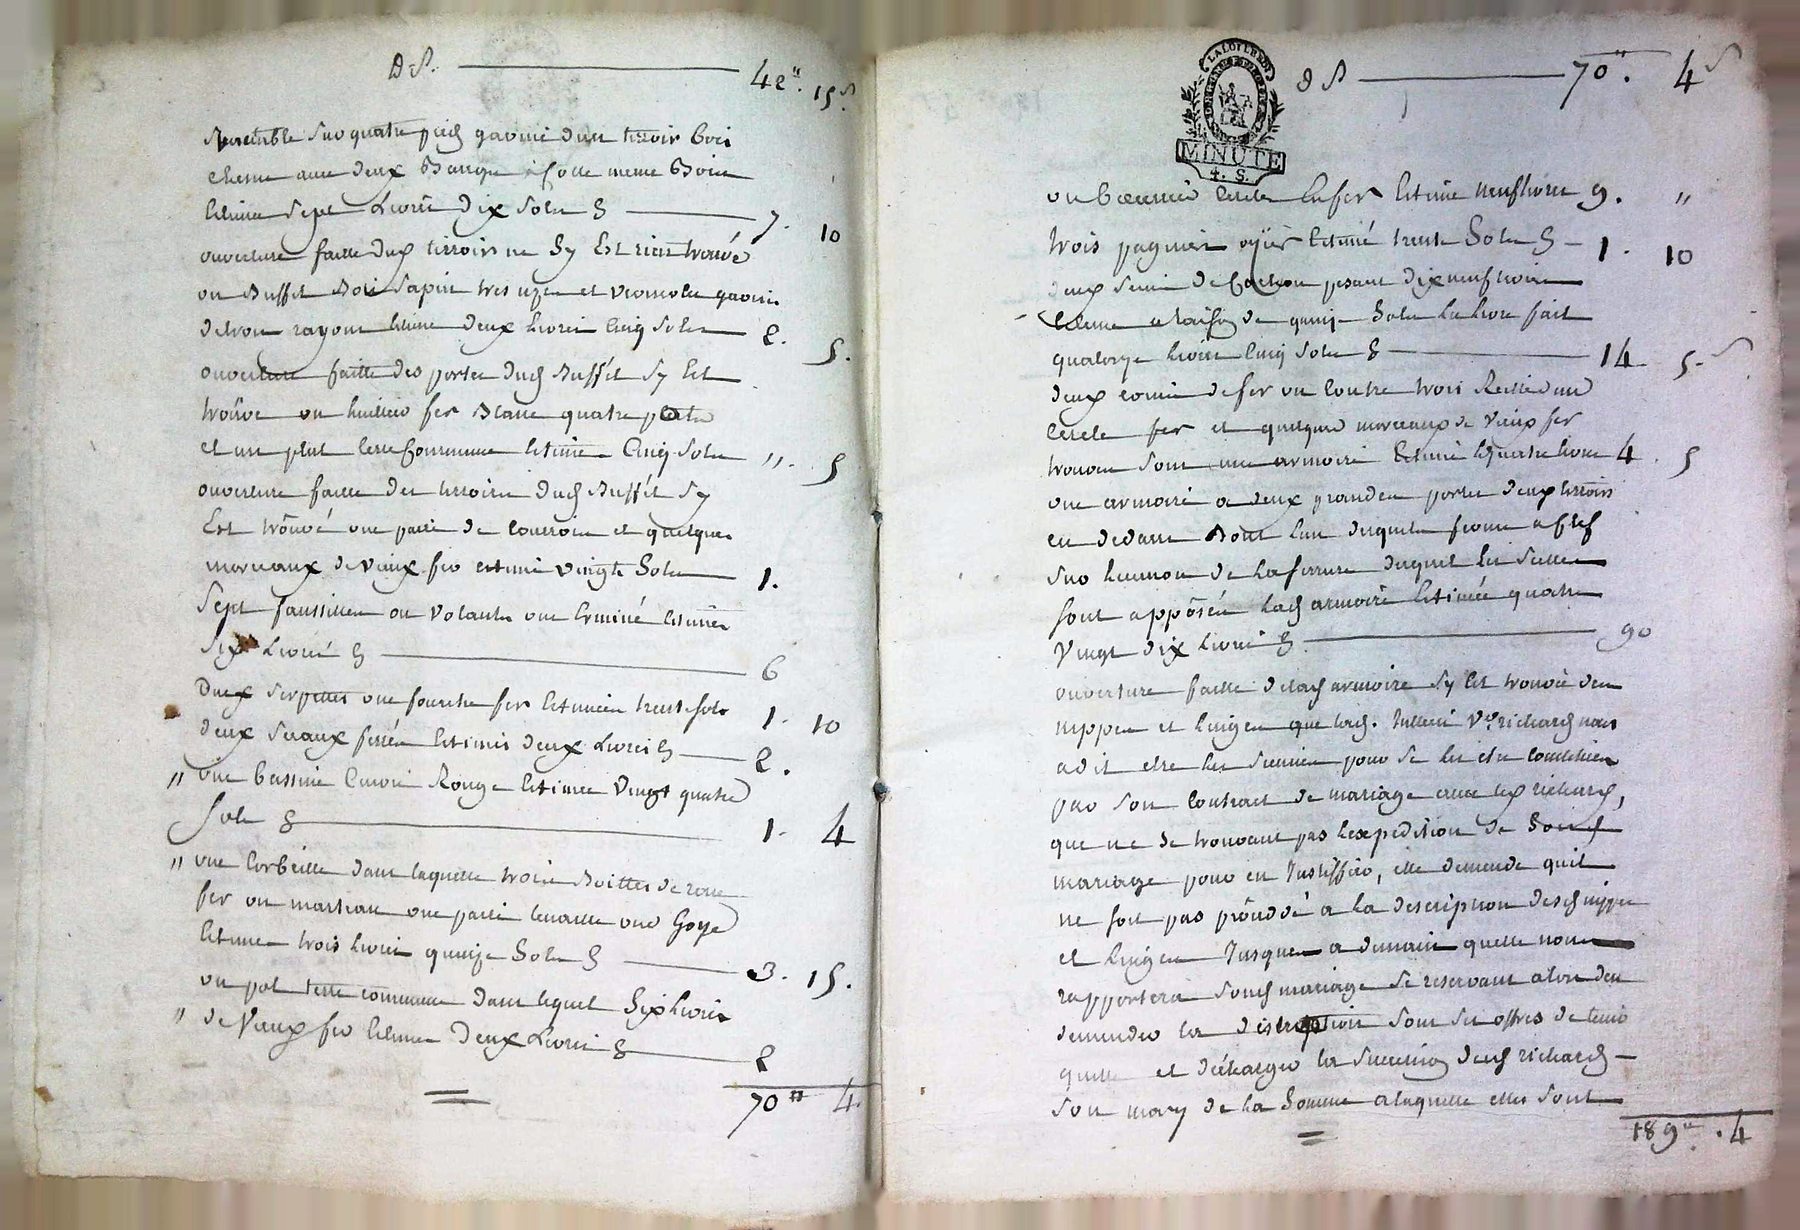 D S. 42" 15 s
quatre pieds garnie d'un tiroir bois
chesne avec deux Banque meme Bois
Estimé sept Livres dix sols 7. 10
ouverture faitte du tirroir ne sy Est rien trouvé
un Buffet Bois sapin tres uzé et garni
de trois rayons Estimé deux Livres Cinq sols 2. 5.
ouverture faitte des portes dud Buffét sy Est
trouvé un huillier fer Blanc quatre plats
et un plat terre Commune Estimé Cinq Sols ". 5
ouverture faitte des tirroirs dud Buffét sy
Est trouvé une paire de et quelques
morceaux de vieux fer estimé vingt Sols 1.
Sept faussilles ou volants une Estimés
Six Livres 6
Deux serpettes une fourche fer Estimées trente sols 1. 10
deux seaux ferrés Estimés deux Livres 2.
" une bassine Cuivre Rouge Estimée vingt quatre
Sols 1. 4
" une Corbeille dans laquelle trois Boittes de roue
fer un marteau une paire tenaille une Goye
Estimés trois Livres quinze Sols 3. 15.
un pot terre commune dans lequel Six Livres
" de Vieux fer Estimé Deux Livres 2
70 " 4.
LA LOI LE ROI
MINUTE
4. S.
D S 70 ". 4 s
un cercle En fer Estimé neuf livres 9. "
trois pagnier ozier Estimé trente Sols 1. 10
deux de pesant dix neuf livres
Estimé a raison de quinze Sols La Livre fait
quatorze Livres Cinq Sols 14 5.
deux coins de fer un Coutre trois
Cercle fer et quelques morceaux de vieux fer
trouvés sous une armoire Estimé quatre livres 4. 5
une armoire a deux grandes portes deux tirroirs
en dedans Dont l'un desquels ferme a Clef
sur de La serrure duquel Les Scellés
sont appôsés Lad armoire Estimée quatre
vingt dix Livres 90
ouverture faitte de lad armoire sy Est trouvé des
nippes et Linges que lad. Ve. richard nous
a dit etre Les siennes pour se Les etre constituées
par son Contract de mariage avec led richard,
que ne se trouvant pas L'expedition de Son d
mariage pour en Justiffier, elle demande quil
ne soit pas procédé a la description desd nippes
et Linges Jusques a demain quelle nous
rapportera Sond mariage se reservant alors den
demander la distraction sous ses offres de tenir
quitte et décharger la succession dud richard
son mary de La Somme a laquelle elles sont
189 ". 4